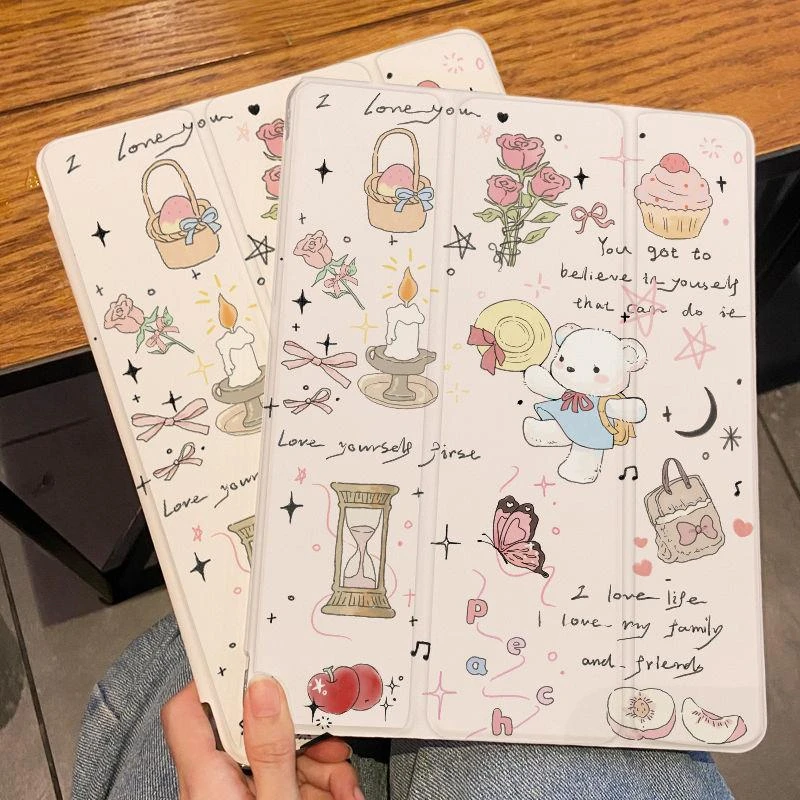 I love you
I love you
You got to
believe in youself
that can do it
Love yourself first
Love your
I love life
I love my family
and friends
peach